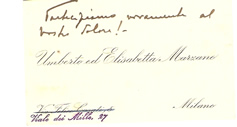 Partecipiamo vivamente al
vostro dolore! -
Umberto ed Elisabetta Marzano
Milano
Viale dei Mille, 27